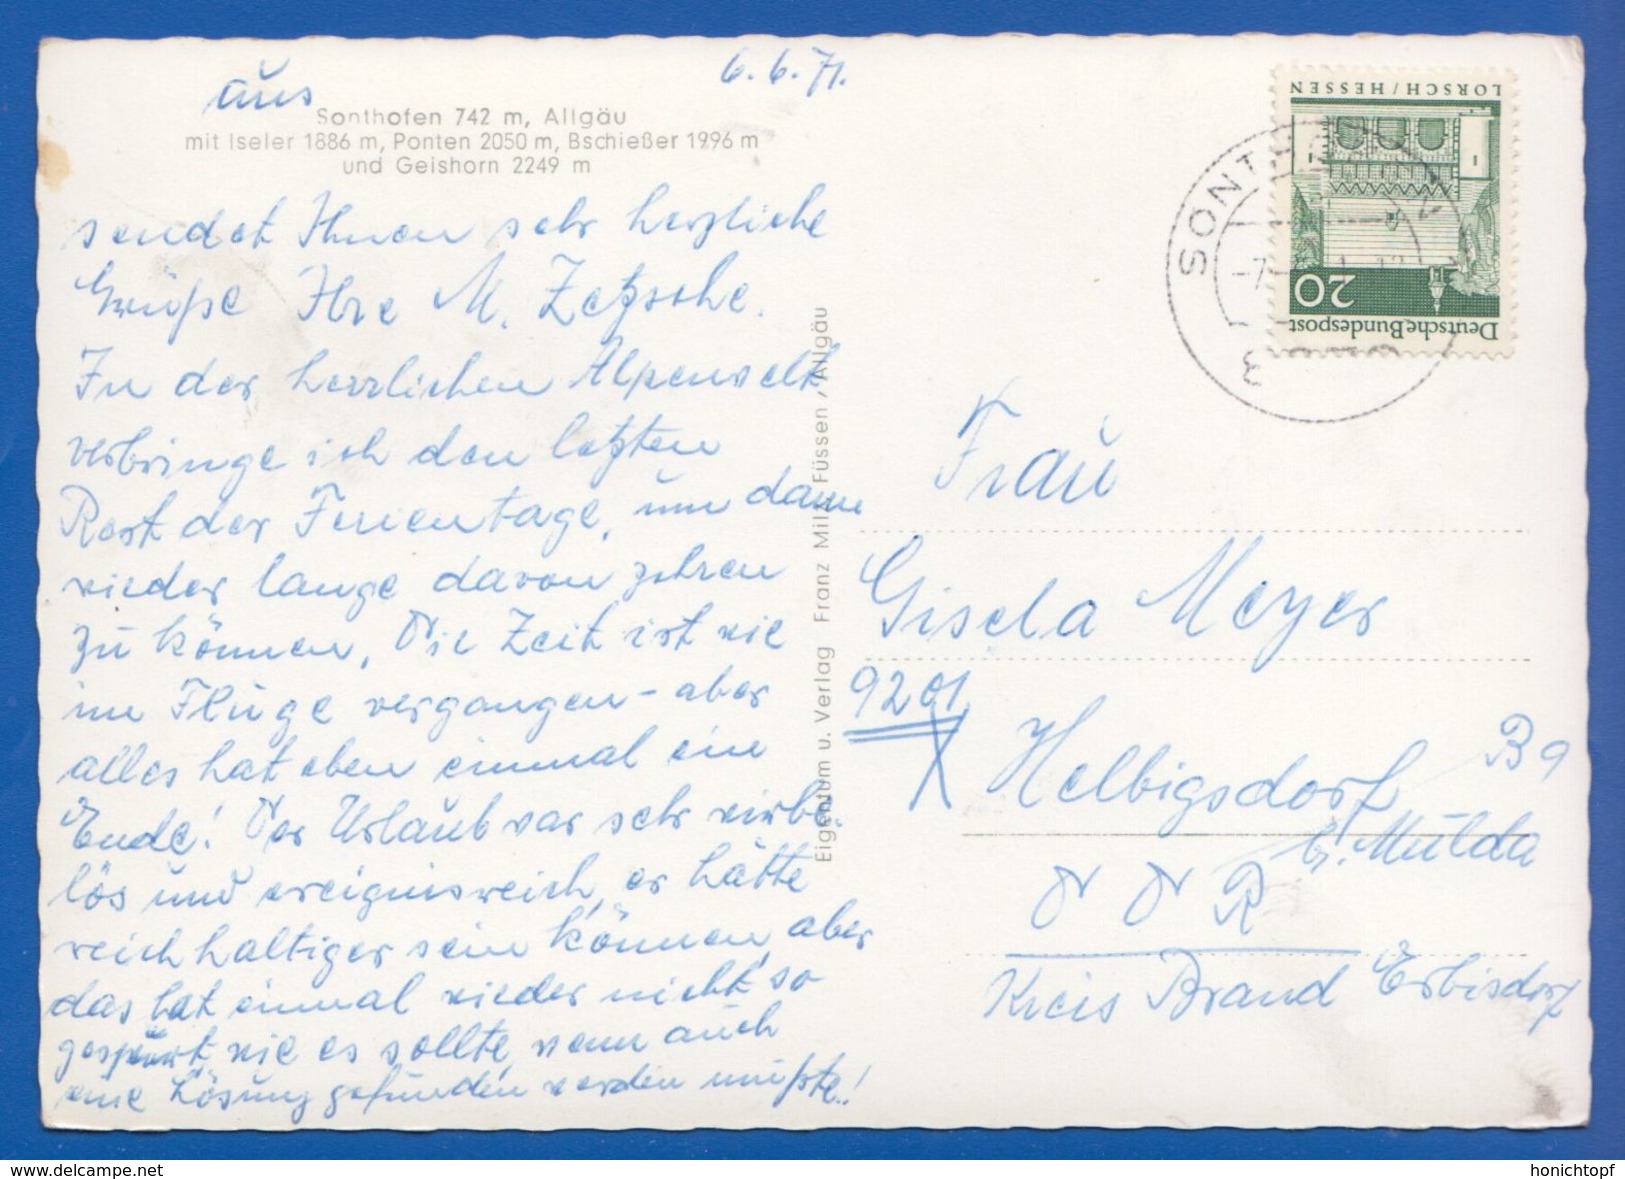 6.6.71.
aus
Sonthofen 742 m, Allgäu
mit Iseler 1886 m, Ponten 2050 m, Bschießer 1996 m
und Geishorn 2249 m
sendet Ihnen sehr herzliche
Grüße Ihre M. Zetzsche.
In der herrlichen Alpenwelt
verbringe ich den letzten
Rest der Ferientage, um dann
wieder lange davon zehren
zu können. Die Zeit ist wie
im Fluge vergangen – aber
alles hat eben einmal ein
Ende! Der Urlaub war sehr wirbe-
lös und ereignisreich, er hätte
reichhaltiger sein können, aber
das hat einmal wieder nicht so
gespurt, wie es sollte, wenn auch
eine Lösung gefunden werden müßte!
Eigentum u. Verlag Franz Milz, Füssen/Allgäu
LORSCH/HESSEN
20
Deutsche Bundespost
SONTHOFEN
3
Frau
Gisela Meyer
9201
X Helbigsdorf B 9
b/. Mulda
DDR
Kreis Brand Erbisdorf
honichtopf
www.delcampe.net